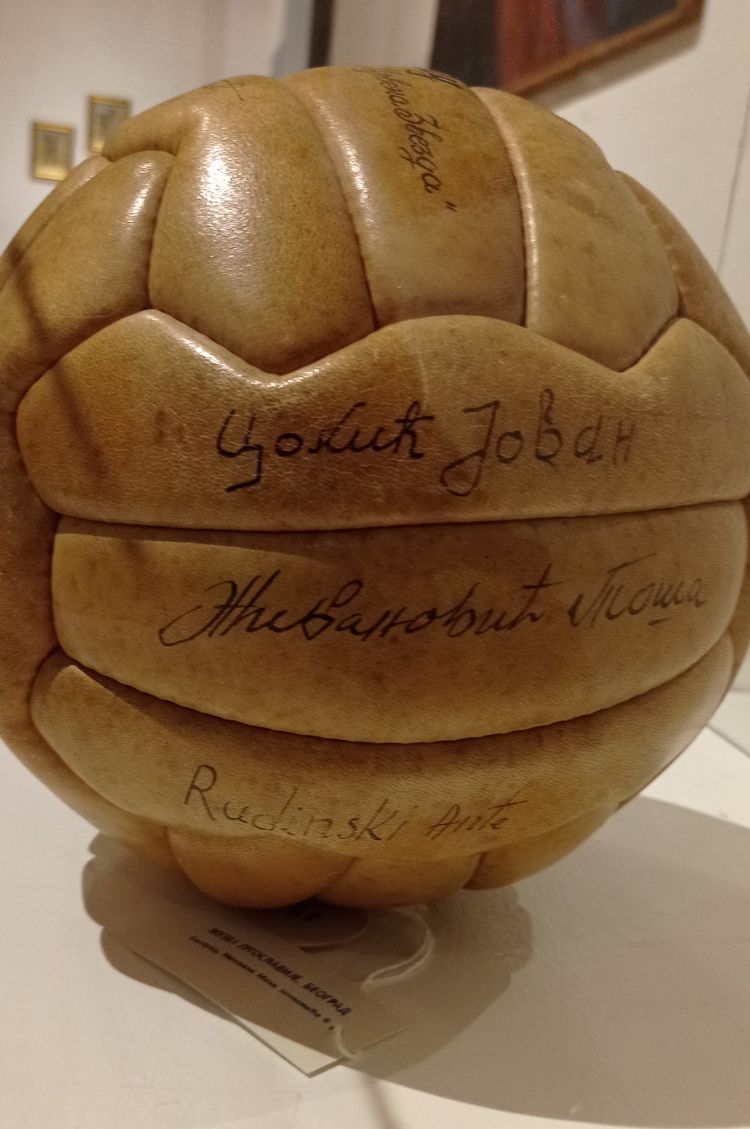 Звезда"
Цокић Јован
Живановић Тоша
Rudinski Ante
МУЗЕЈ ЈУГОСЛАВИЈЕ, БЕОГРАД